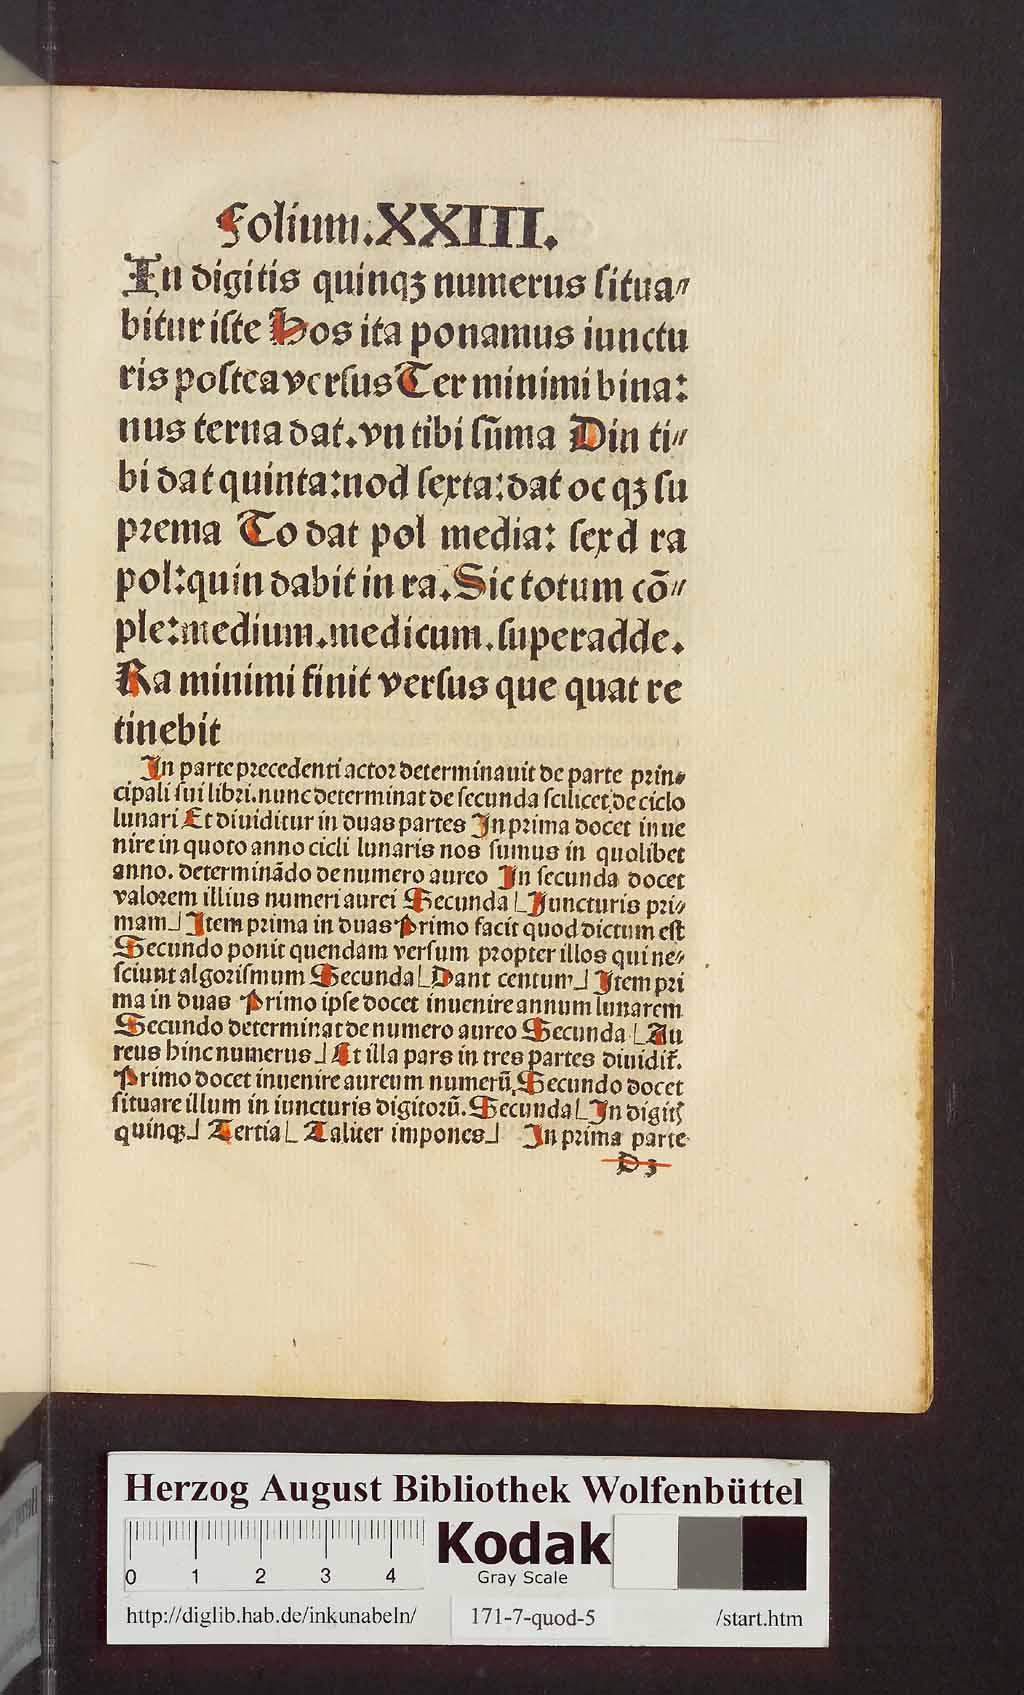 Folium.XXIIII.
In digitis quinqꝫ numerus situa⸗
bitur iste Hos ita ponamus iunctu
ris postea versus Ter minimi bina:
nus terna dat.vn tibi sūma Din ti⸗
bi dat quinta:nod sexta:dat oc qꝫ su
prema To dat pol media: sexd ra
pol:quin dabit in ra.Sic totum cō⸗
ple:medium.medicum.superadde.
Ra minimi finit versus que quat re
tinebit
In parte precedenti actor determinauit de parte prin⸗
cipali sui libri.nunc determinat de secunda scilicet de ciclo
lunari Et diuiditur in duas partes In prima docet inue
nire in quoto anno cicli lunaris nos sumus in quolibet
anno. determinādo de numero aureo In secunda docet
valorem illius numeri aurei Secunda ⌊Juncturis pri⸗
mam⌋ Item prima in duas Primo facit quod dictum est
Secundo ponit quendam versum propter illos qui ne⸗
sciunt algorismum Secunda⌊Dant centum⌋ Item pri
ma in duas Primo ipse docet inuenire annum lunarem
Secundo determinat de numero aureo Secunda ⌊Au
reus hinc numerus⌋ Et illa pars in tres partes diuidit̄.
Primo docet inuenire aureum numerū.Secundo docet
situare illum in iuncturis digitorū. Secunda⌊In digitꝭ
quinqꝫ⌋ Tertia⌊ Taliter impones⌋ In prima parte
D 3
Herzog August Bibliothek Wolfenbüttel
0 1 2 3 4
Kodak
Gray Scale
http://diglib.hab.de/inkunabeln/ 171-7-quod-5 /start.htm